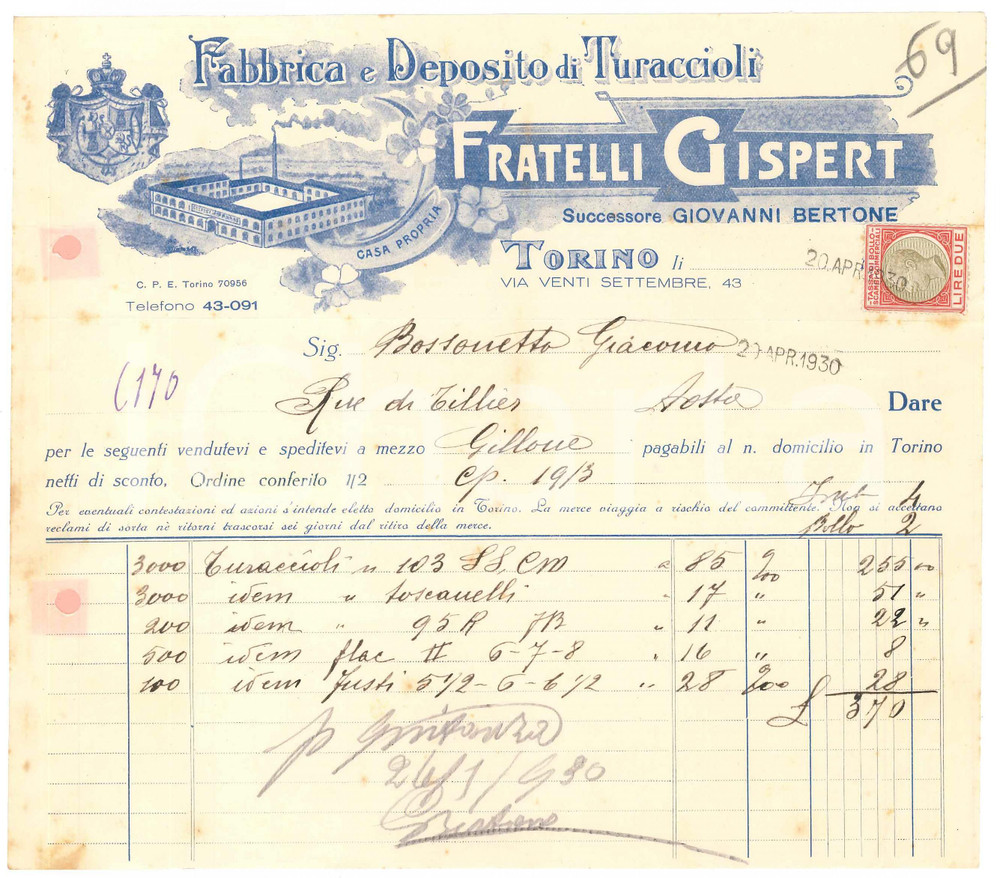 69
Fabbrica e Deposito di Turaccioli
FRATELLI GISPERT
Successore GIOVANNI BERTONE
CASA PROPRIA
TORINO li 20.APR.1930
VIA VENTI SETTEMBRE, 43
TASSA DI BOLLO
SCAMBI COMMERCIALI
LIRE DUE
C. P. E. Torino 70956
Telefono 43-091
Sig. Bossonetto Giacomo 20 APR.1930
6170
Rue di Tillier Aosta Dare
per le seguenti vendutevi e speditevi a mezzo Gillone pagabili al n. domicilio in Torino
netti di sconto, Ordine conferito 1/2 cp. 19/3
4
Per eventuali contestazioni ed azioni s'intende eletto domicilio in Torino. La merce viaggia a rischio del committente. Non si accettano
reclami di sorta nè ritorni trascorsi sei giorni dal ritiro della merce. Bollo 2
3000 Turaccioli n 103 SS CM a 85 %00 255 00
3000 idem " toscanelli " 17 " 51 "
200 idem " 95 R JB " 11 " 22 "
500 idem flac II 6-7-8 " 16 " 8
100 idem Justi 5 1/2 - 6 - 6 1/2 " 28 %00 28
£ 370
p Quitanza
930
Bertone